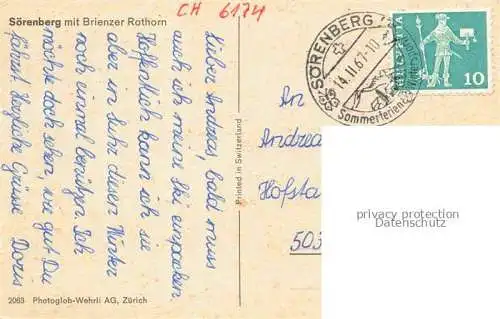 Sörenberg mit Brienzer Rothorn
CH 6174
Lieber Andreas, bald muss
auch ich meine Ski einpacken.
Hoffentlich kann ich sie
aber im Suhr diesen Winter
noch einmal benützen. Ich
möchte doch sehen, wie gut Du
fährst. Herzliche Grüsse Doris
2063 Photoglob-Wehrli AG, Zürich
Printed in Switzerland
SÖRENBERG
14.11.67-10
Sommerferien
HELVETIA
10
An
Andrea
Hofsta
503
privacy protection
Datenschutz